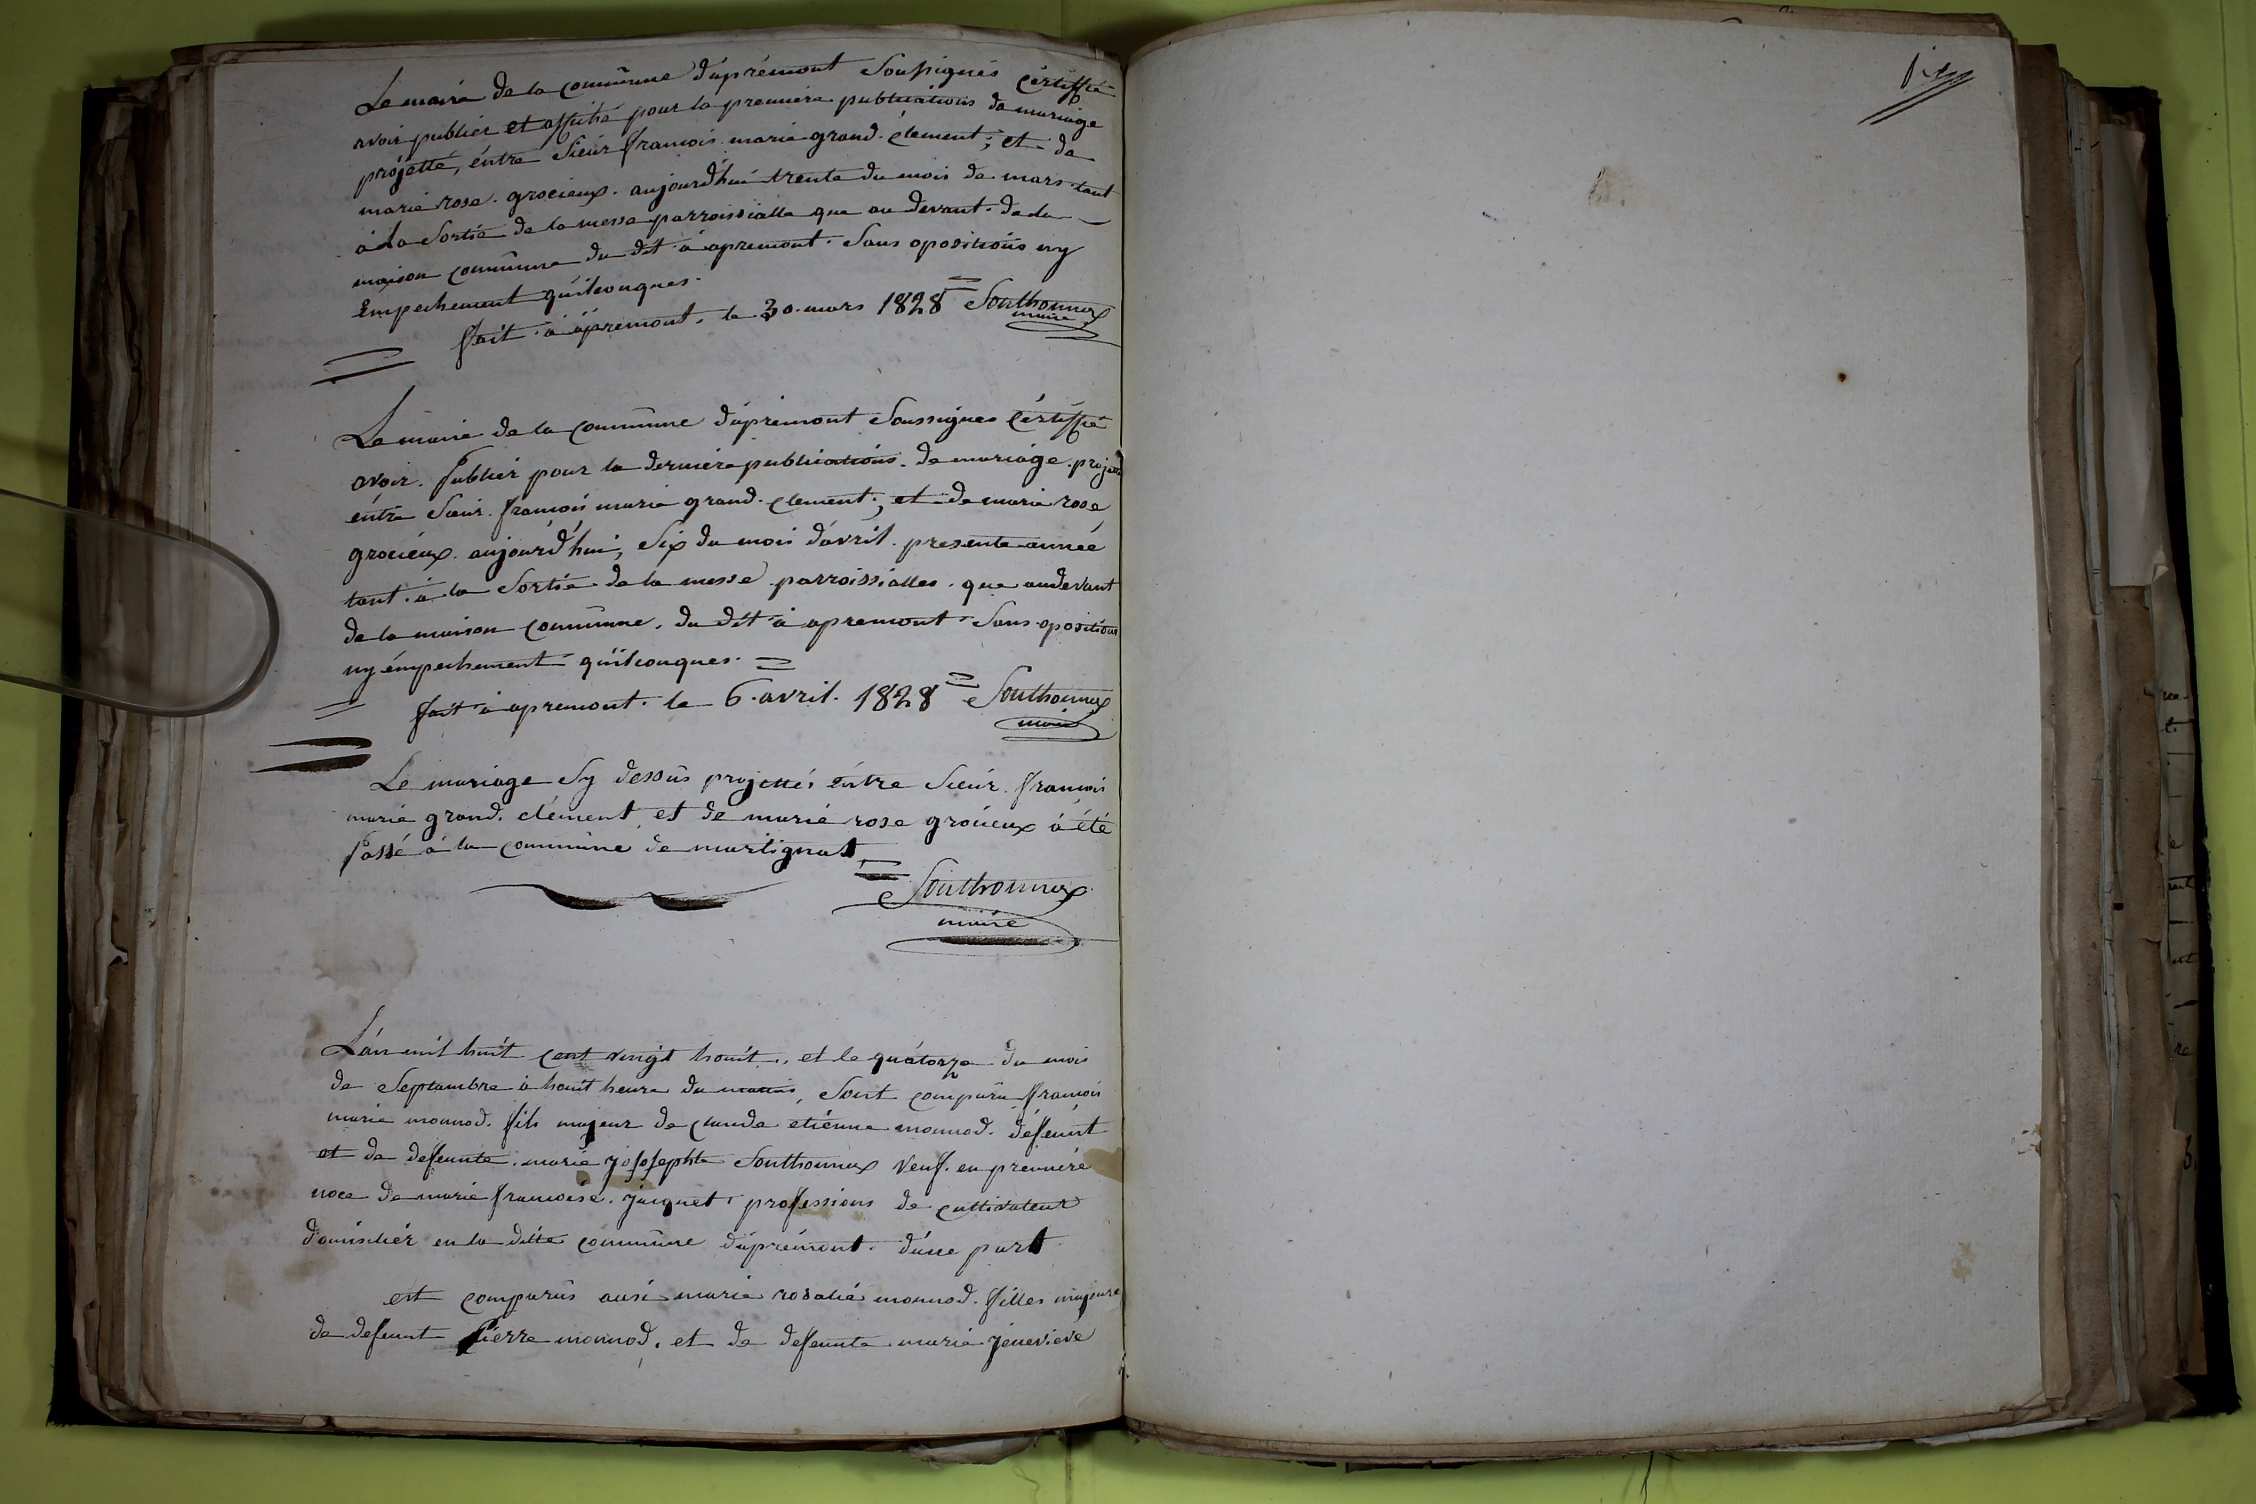 Le maire de la commûne d'aprémont Soussignés Cértiffié
avoir publiér et affiché pour la premiére publications de mariage
projétté, éntre Sieur francois marie grand. clement ; et de
marie rose. grocieux. aujourd'hui trente du mois de mars tant
à La Sortié de la messe parroissialle que au devant. de la
maison commûne du dit à apremont. Sans opositions ny
Empechement quilconques.
fait à apremont. le 30. mars 1828 Southonnax
maire
Le maire de la commûne d'aprémont Soussignés Cértiffié
avoir. Publiér pour la derniére publications. de mariage. projetté
éntre Sieur. francois marie grand. clement ; et de marie rose
grociéux. aujourd'hui, Six du mois d'avril. presente année
tant. à la Sortié de la messe parroissialles. que au devant
de la maison commûne. du dit à apremont. Sans opositions
ny émpechement quilconques.
fait à apremont. le 6. avril. 1828 Southonnax
maire
Le mariage Sy dessus projettés éntre Sieur. francois
marie grand. clément et de marie rose grocieux à été
Passé à la commûne de martignat
Southonnax
maire
L'an mil huit cent vingt houit. et le quatorze du mois
de Septambre à houit heure du matins, Sont comparu francois
marie monnod. fils majeur de claude etiénne monnod. défeunt
et de defeunte. marie jososephte Southonnax veuf. en premiére
noce de marie francoise. jacquet. professions de cultivateur
domiciliér en la ditte commûne d'aprémont. d'une part
est comparûs ausi marie rosalié monnod. filles majeure
de defeunt Pierre monnod. et de defeunte marie jénevieve